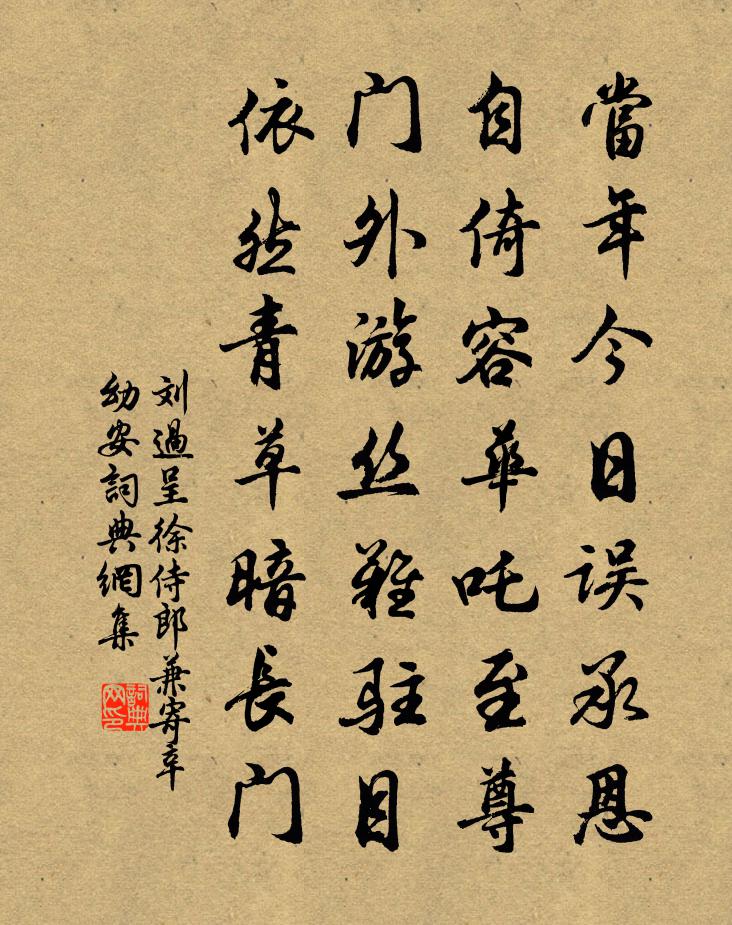 當年今日误承恩
自倚容華吒至尊
门外游丝難駐目
依然青草暗長门
刘過呈徐侍郎兼寄辛
幼安詞典網集
詞典网印